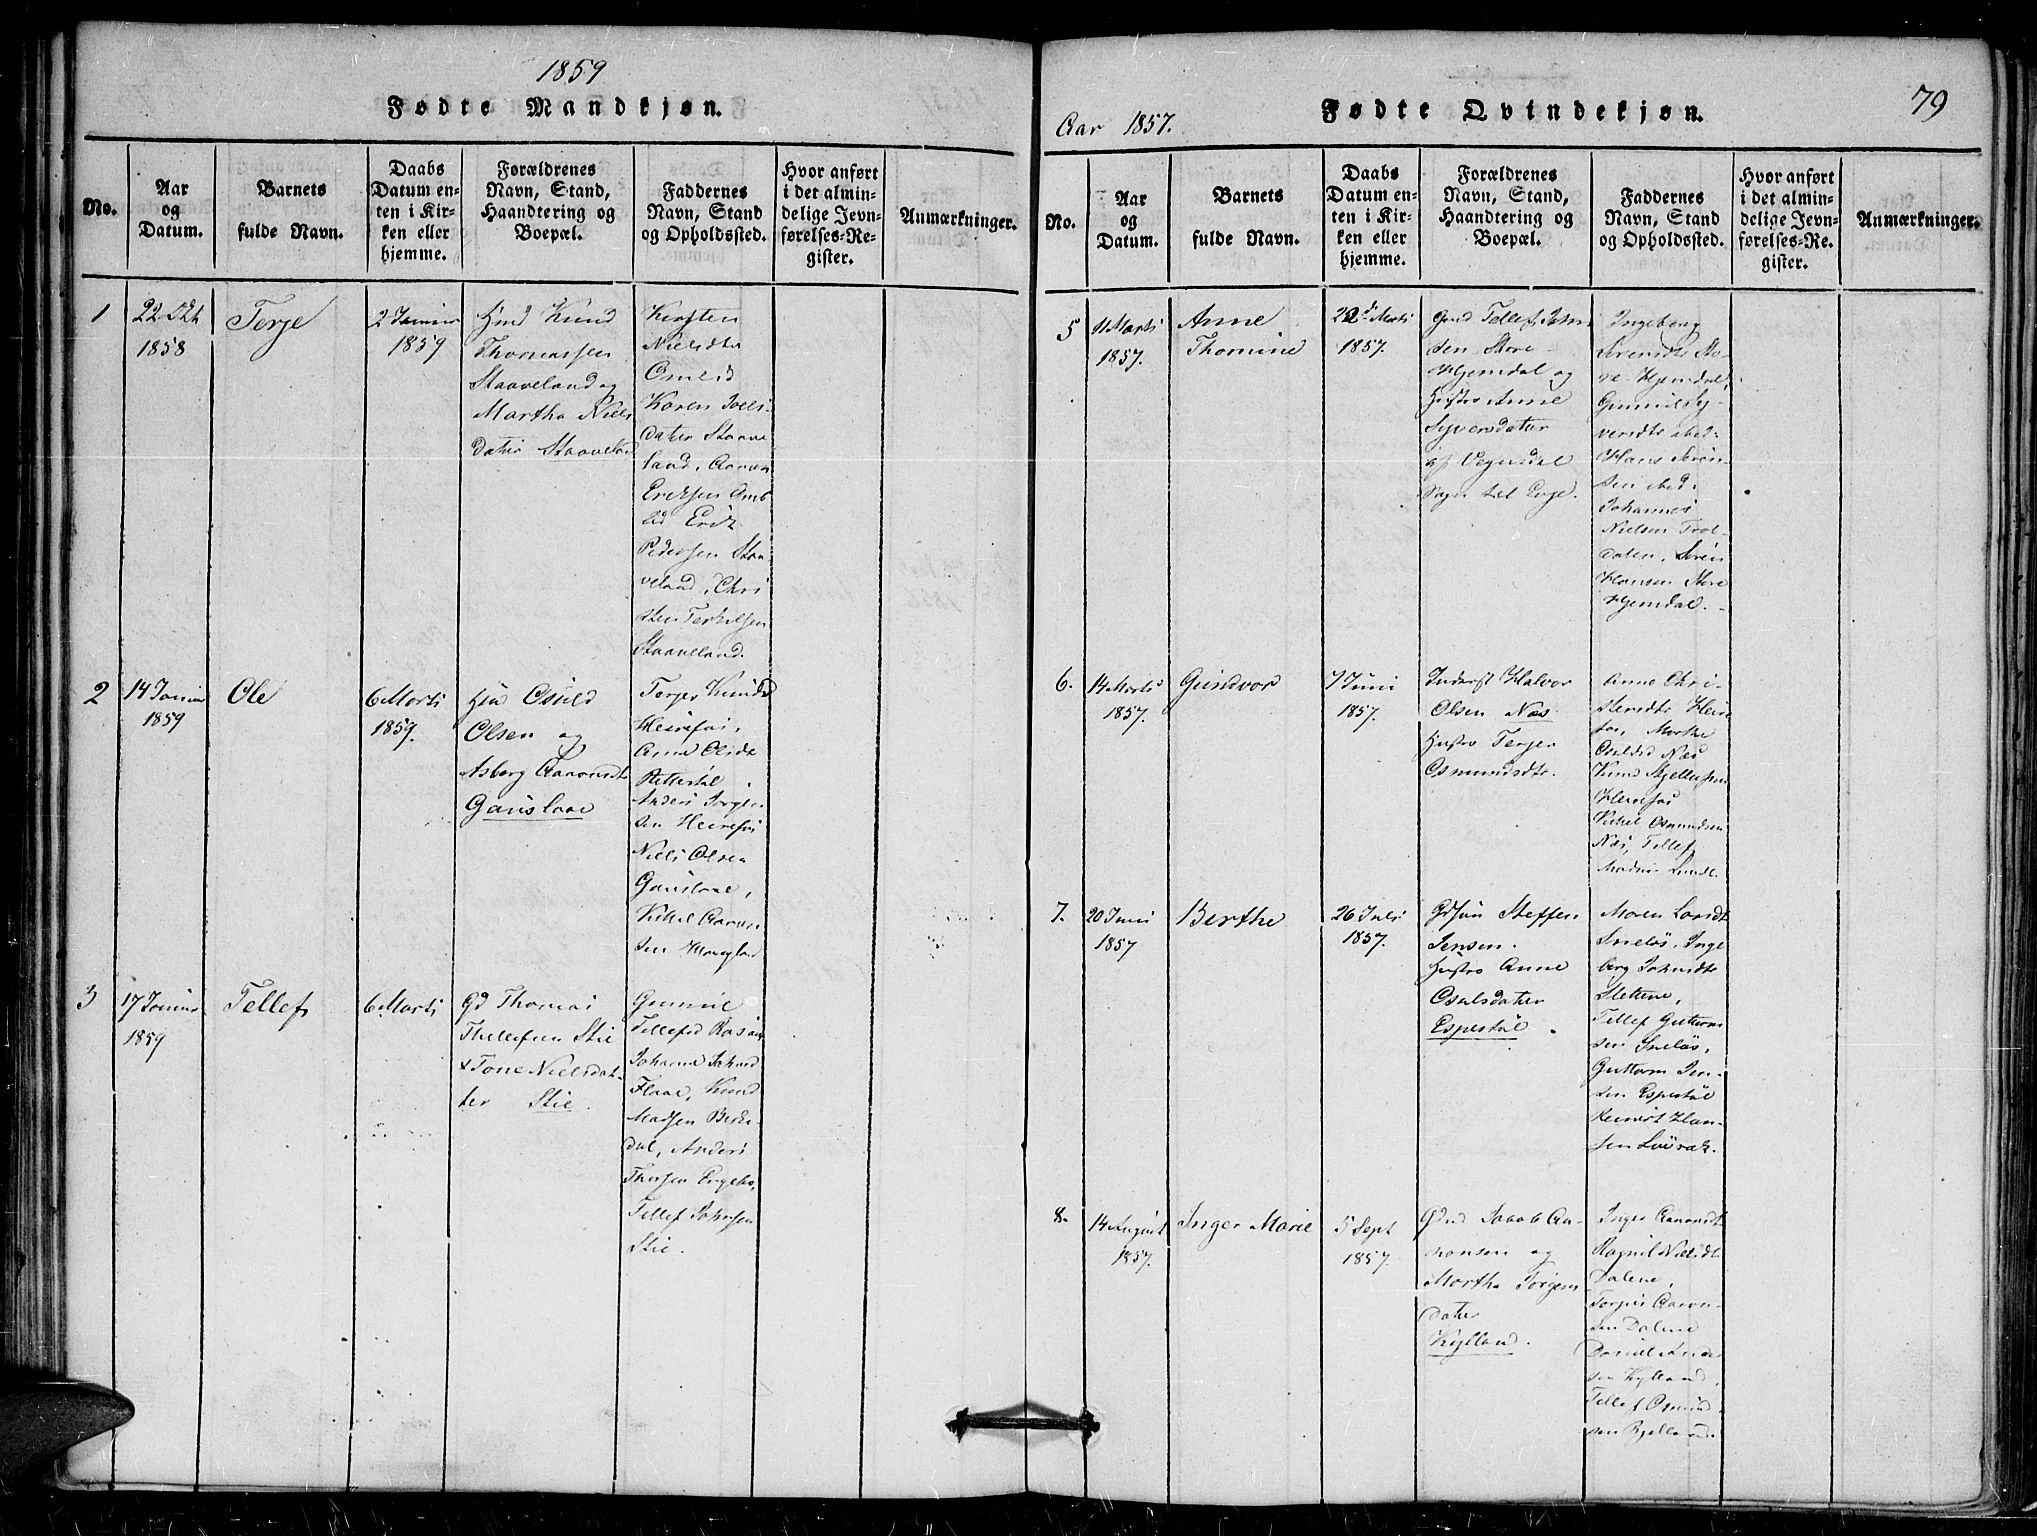 1859
Fødte Mandkjøn.
No.
Aar
og
Datum.
Barnets
fulde Navn.
Daabs
Datum en-
ten i Kir-
ken eller
hjemme.
Forældrenes
Navn, Stand,
Haandtering og
Boepæl.
Faddernes
Navn, Stand
og Opholdssted.
Hvor anført
i det almin-
delige Jevn-
førelses-Re-
gister.
Anmærkninger.
1
22
1858
Terje
2 Januar
1859
Knud
Thomassen
Staaveland og
Martha Niels
datter Staaveland
Kirsten
Nielsdtr
Omlid
Karen Joels-
datter Staave
land, Aanon
Eriksen Om
lid Erik
Pedersen Staa
veland, Chri
sten Terkelsen
Staaveland.
2
14 Januar
1859
Ole
6 Marts
1859.
Osuld
Olsen og
Asberg Aanonsdtr
Gauslaae
Terjer Knuds
Heirefos,
Anne Olsdtr
Rettestøl
Anders Jørgen
sen Heirefos
Niels Olsen
Gauslaae,
Kittel Aanon
sen
3
17 Januar
1859
Tellef
6 Marts
Gd Thomas
Thellefsen Stie
& Tone Nielsdat-
ter Stie.
Gunnil
Tellefsd
Johanne
Flaae, Knud
Madsen Birke-
dal, Anders
Engebo,
Tellef Johnsen
Stie.
79
Aar 1857.
Fødte Qvindekjøn.
No.
Aar
og
Datum.
Barnets
fulde Navn.
Daabs
Datum en-
ten i Kir-
ken eller
hjemme.
Forældrenes
Navn, Stand,
Haandtering og
Boepæl.
Faddernes
Navn, Stand
og Opholdssted.
Hvor anført
i det almin-
delige Jevn-
førelses-Re-
gister.
Anmærkninger.
5
11 Marts
1857.
Anne
Thomine
22d Marts
1857.
Gmd Tellef John
sen Store
Hjemdal og
Hustro Anne
Syversdatter
af Vegusdal
Sogn til Evje.
Ingeborg
Sørensdtr Sto-
re-Hjemdal,
Gunnil Sy-
versdtr ibed:
Hans Søren-
sen ibed.
Johannes
Nielsen Trol-
dalen, Søren
Hansen Store
Hjemdal.
6.
14 Marts
1857.
Gundvor
7 Juni
1857.
Inderst Halvor
Olsen Næs
Hustro Terjer
Osmundsdtr.
Anne Chri-
stensdtr Heire
fos, Marthe
Osuldsd Næs
Knud
Heirefos
Kittel Osmundsen
Næs, Tellef
7.
20 Juni
1857
Berthe
26 Juli
1857.
Steffen
Jensen.
Hustro Anne
Osulsdatter
Espestøl
Maren Larsdt
Sneløs, Inge
berg
Slettene,
Tellef Guttorm
sen Sneløs,
Guttorm Jen-
sen Espestøl
Reinert Han-
sen
8.
14 August
1857.
Inger Marie
5 Sept
1857.
Gmd Jacob Aa-
nonsen og
Martha Jørgens
datter
Kylland.
Inger Aanonsdt
Ragnil Nielsdt
Dalene,
Torjus Aanon-
sen Dalene
Daniel Ander
sen Kylland,
Tellef Osmund
sen Kjelland.